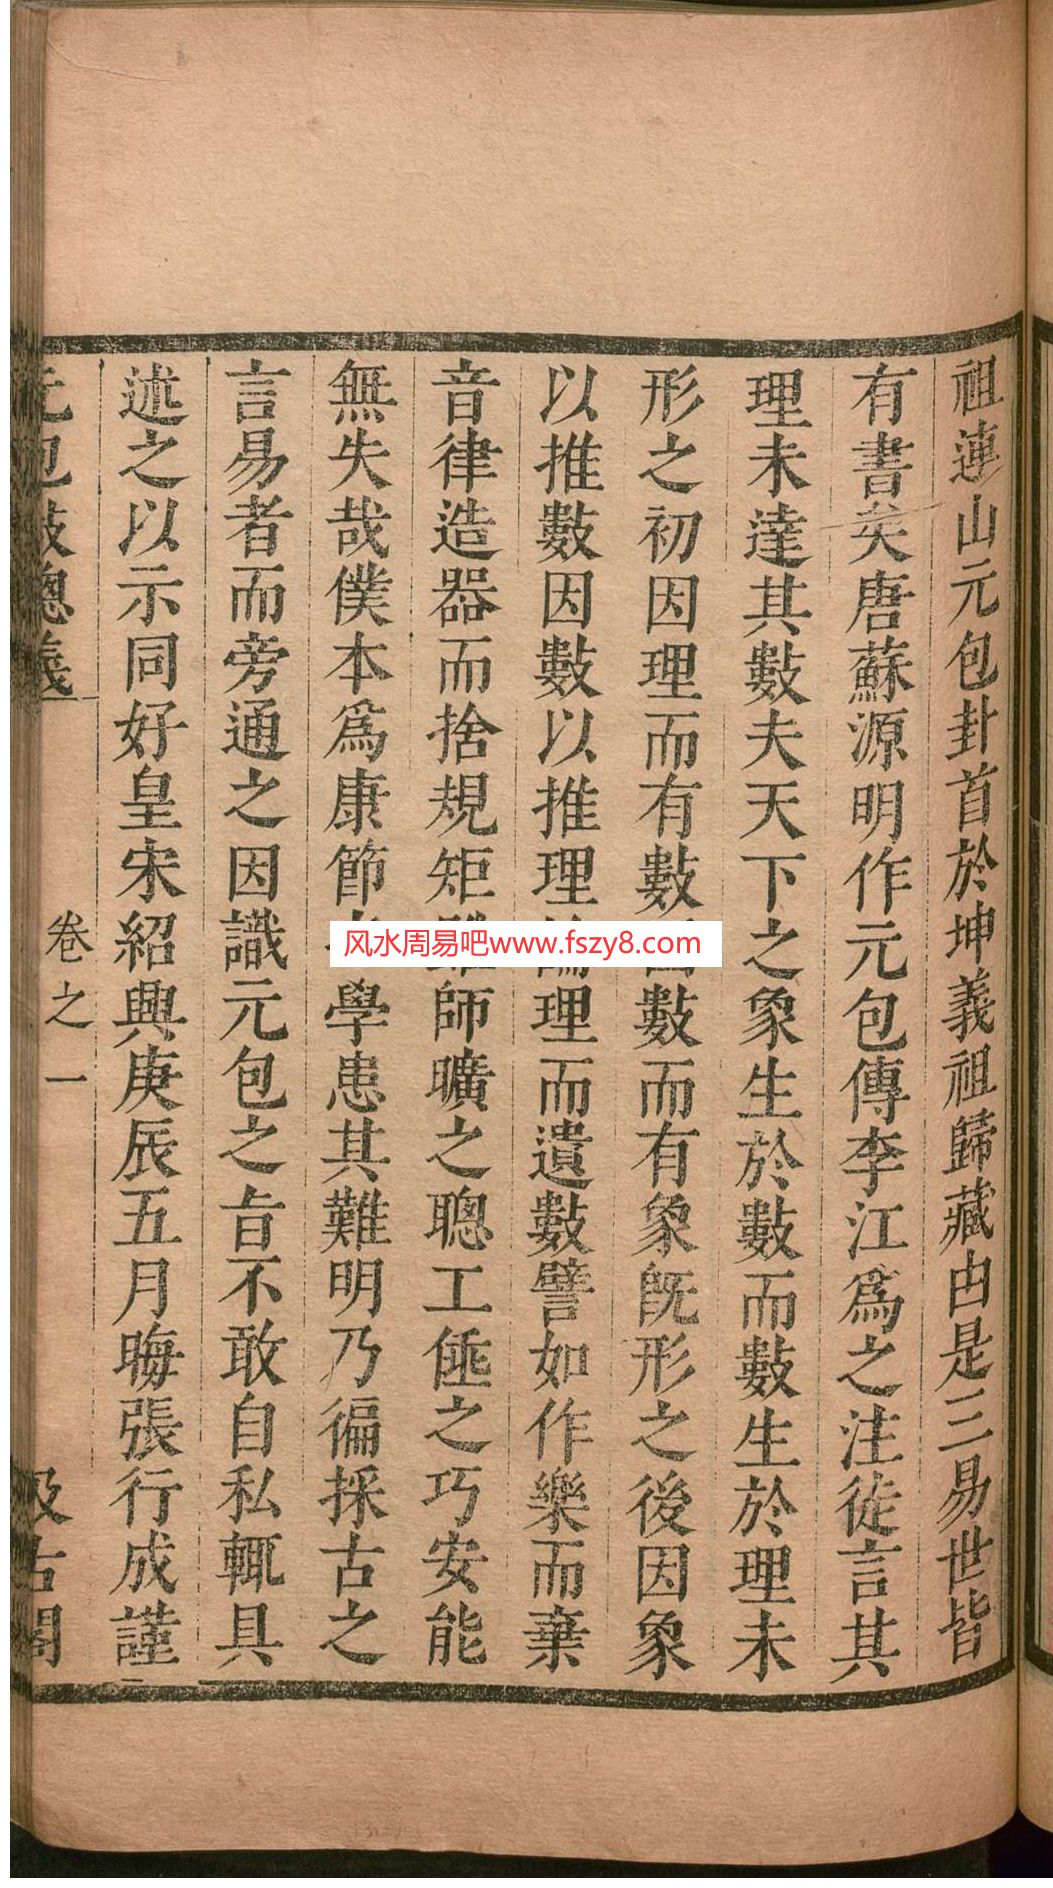 祖連山元包卦首於坤義祖歸藏由是三易世皆
有書矣唐蘇源明作元包傳李江爲之注徒言其
理未達其數夫天下之象生於數而數生於理未
形之初因理而有數因數而有象旣形之後因象
以推數因數以推理論理而遺數譬如作樂而棄
音律造器而捨規矩雖師曠之聰工倕之巧安能
無失哉僕本爲康節學患其難明乃徧採古之
言易者而旁通之因識元包之旨不敢自私輒具
述之以示同好皇宋紹興庚辰五月晦張行成謹
元包數總義
卷之一
汲古閣
风水周易吧www.fszy8.com